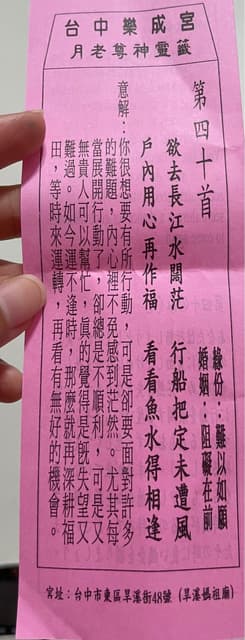 台中樂成宮
月老尊神靈籤
第四十首
緣份：難以如願
婚姻：阻礙在前
欲去長江水闊茫　行船把定未遭風
戶內用心再作福　看看魚水得相逢
意解：你很想要有所行動，可是卻要面對許多
的難題，內心裡不免感到茫然。尤其每
當展開行動了，卻總是不順利，可是又
無貴人可以幫忙，真的覺得是既失望又
難過。如今運不逢時，那麼就再深耕福
田，等時來運轉，再看有無好的機會。
宮址：台中市東區旱溪街48號（旱溪媽祖廟）